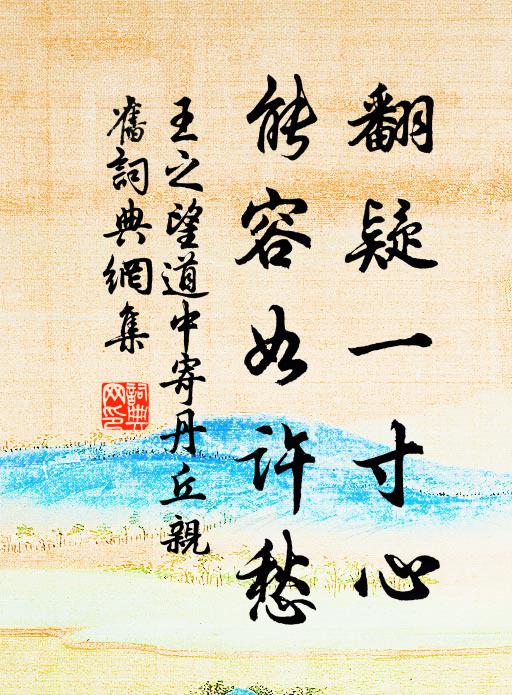 翻疑一寸心
能容如許愁
王之望道中寄丹丘親
舊詞典網集
詞典網印